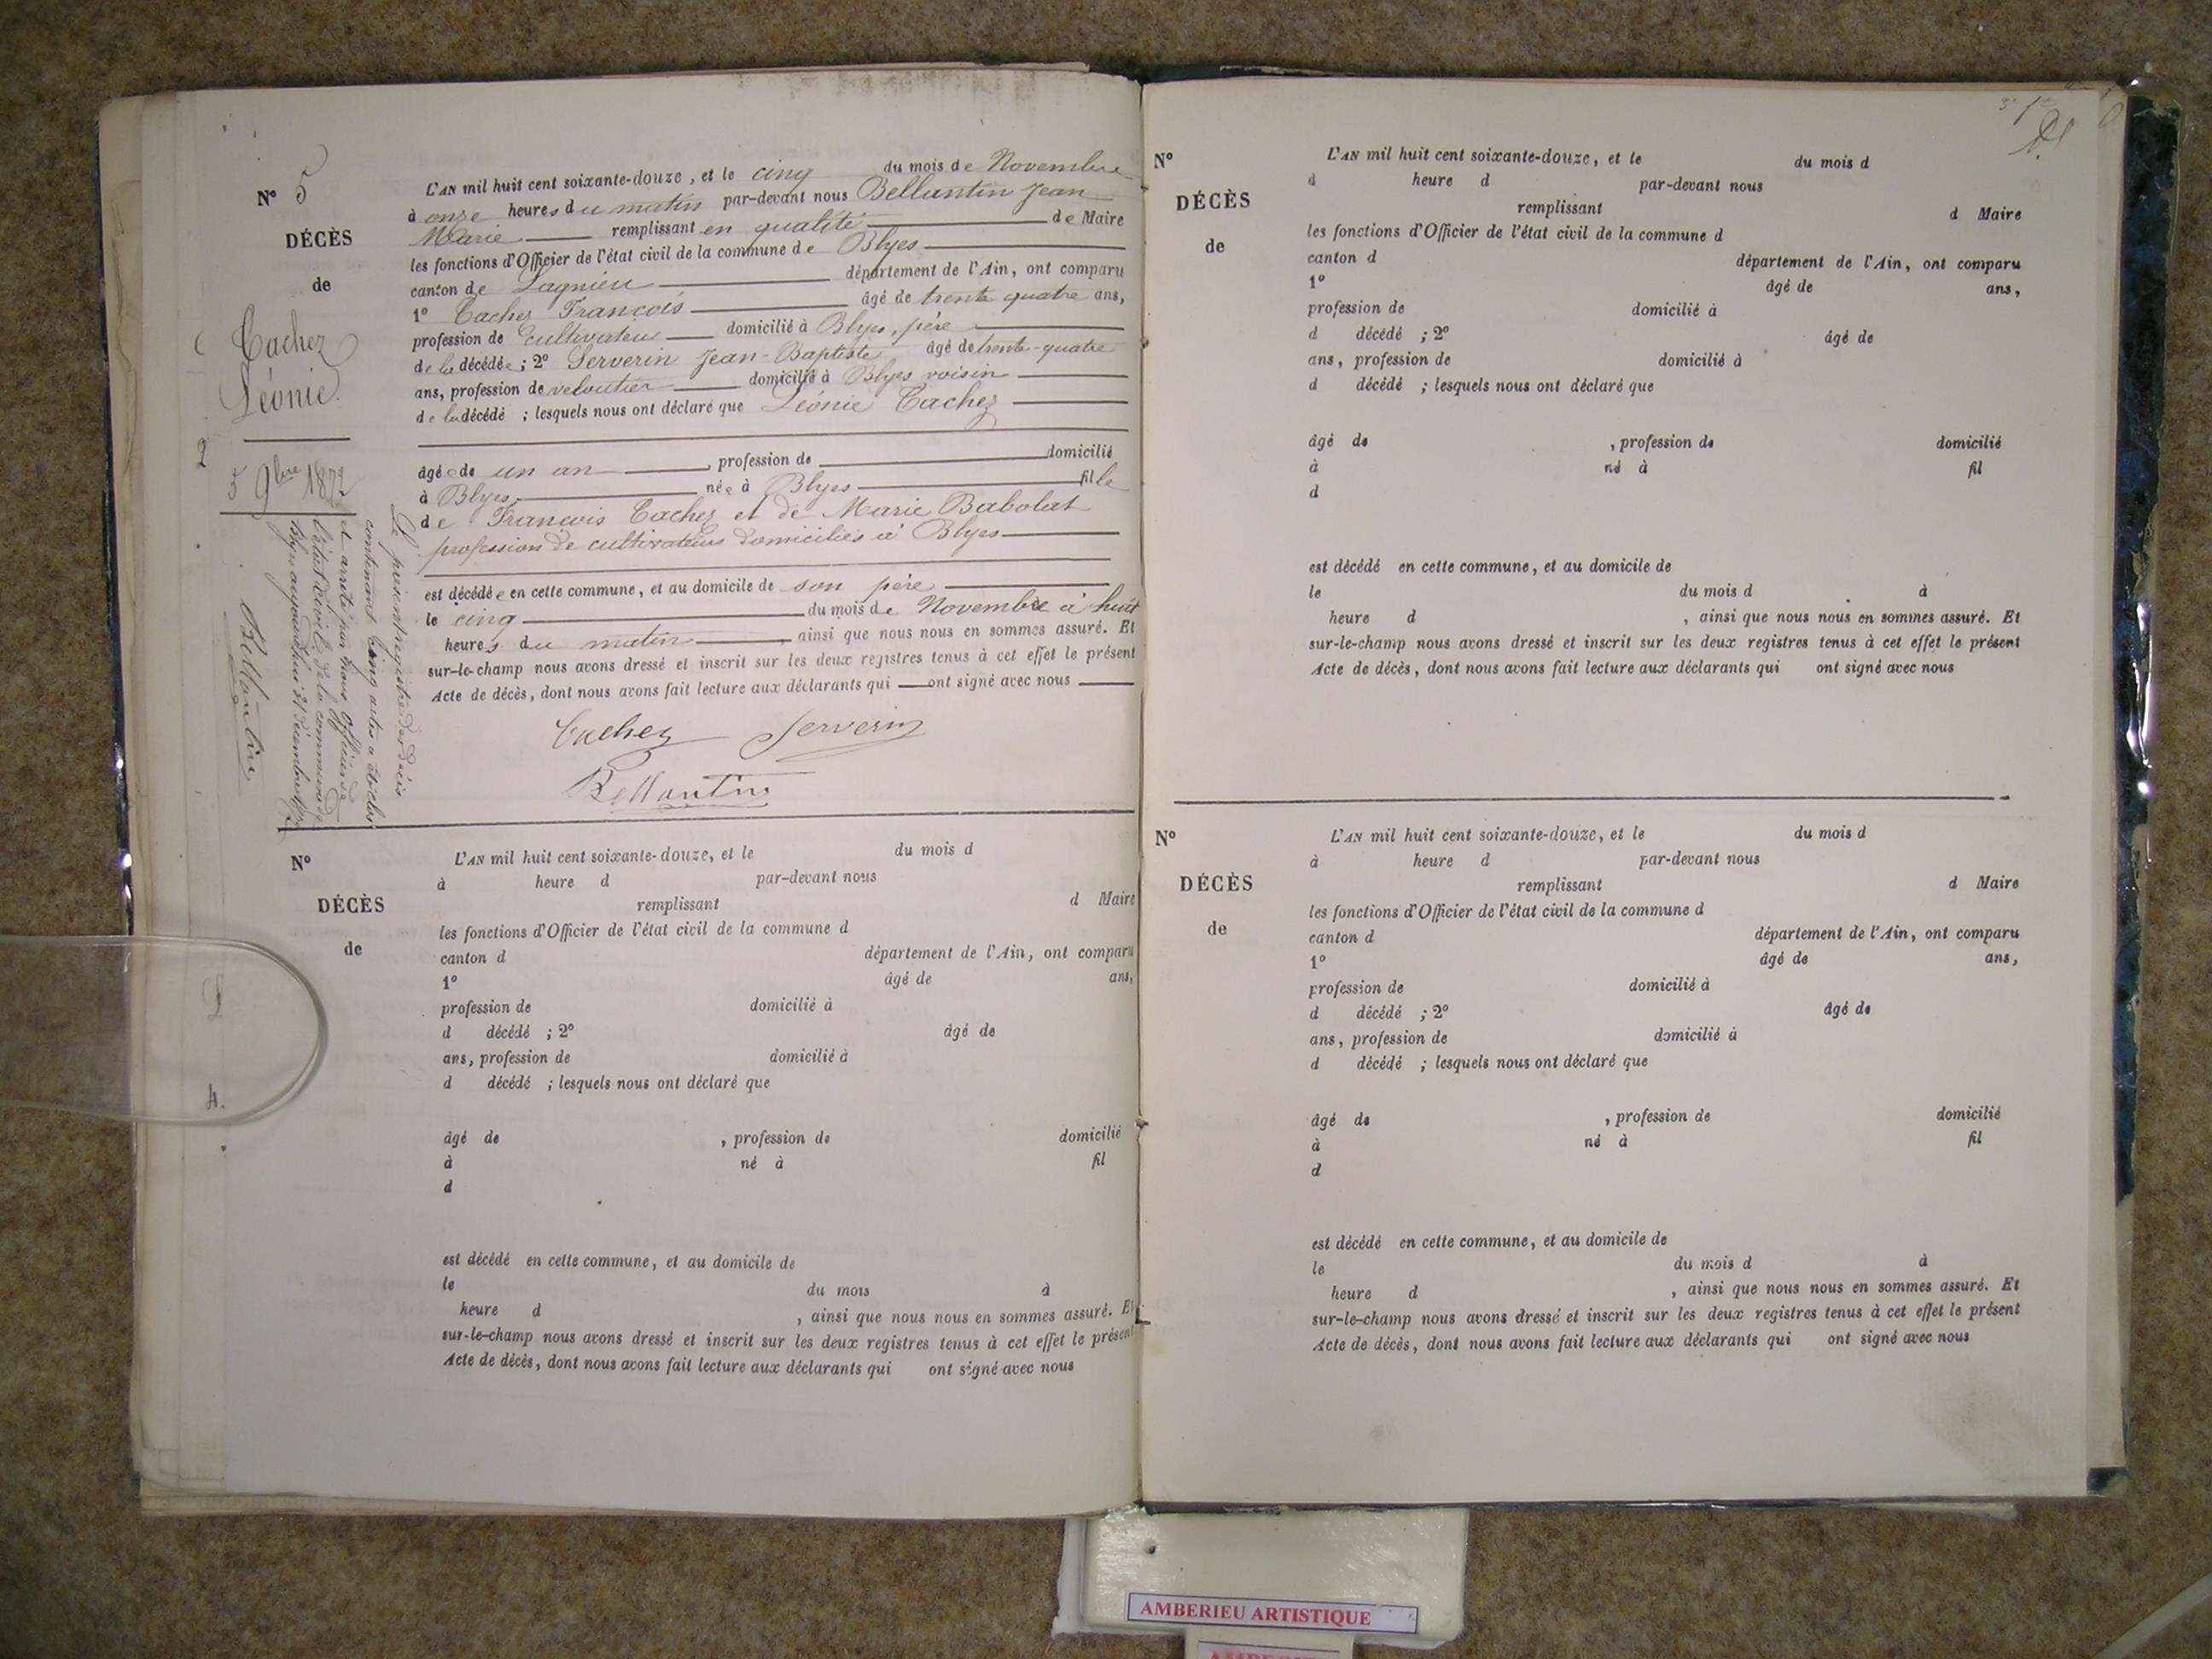 N° 5
DÉCÈS
de
Cachez
Léonie
5 9bre 1872
L'AN mil huit cent soixante-douze, et le cinq du mois de Novembre
à onze heures du matin par-devant nous Bellantin Jean
Marie remplissant en qualité de Maire
les fonctions d'Officier de l'état civil de la commune de Blyes
canton de Lagnieu département de l'Ain, ont comparu
1° Cachez Francois âgé de trente quatre ans,
profession de cultivateur domicilié à Blyes, père
de la décédée ; 2° Serverin Jean-Baptiste âgé de trente-quatre
ans, profession de veloutier domicilié à Blyes voisin
de la décédé ; lesquels nous ont déclaré que Léonie Cachez
âgée de un an , profession de domicilié
à Blyes née à Blyes fille
de Francois Cachez et de Marie Babolat
profession de cultivateurs domiciliés à Blyes
est décédée en cette commune, et au domicile de son père
le cinq du mois de Novembre à huit
heures du matin ainsi que nous nous en sommes assuré. Et
sur-le-champ nous avons dressé et inscrit sur les deux registres tenus à cet effet le présent
Acte de décès, dont nous avons fait lecture aux déclarants qui ont signé avec nous
Cachez Serverin
Bellantin
Le présent registre des décès
contenant cinq actes a été clos
et arrêté par nous officier de
l'état civil de la commune de
Blyes aujourd'hui 31 décembre
Bellantin
N°
DÉCÈS
de
L'AN mil huit cent soixante-douze, et le du mois d
à heure d par-devant nous
remplissant d Maire
les fonctions d'Officier de l'état civil de la commune d
canton d département de l'Ain, ont comparu
1° âgé de ans,
profession de domicilié à
d décédé ; 2° âgé de
ans, profession de domicilié à
d décédé ; lesquels nous ont déclaré que
âgé de , profession de domicilié
à né à fil
d
est décédé en cette commune, et au domicile de
le du mois à
heure d , ainsi que nous nous en sommes assuré. Et
sur-le-champ nous avons dressé et inscrit sur les deux registres tenus à cet effet le présent
Acte de décès, dont nous avons fait lecture aux déclarants qui ont signé avec nous
N°
DÉCÈS
de
L'AN mil huit cent soixante-douze, et le du mois d
à heure d par-devant nous
remplissant d Maire
les fonctions d'Officier de l'état civil de la commune d
canton d département de l'Ain, ont comparu
1° âgé de ans,
profession de domicilié à
d décédé ; 2° âgé de
ans, profession de domicilié à
d décédé ; lesquels nous ont déclaré que
âgé de , profession de domicilié
à né à fil
d
est décédé en cette commune, et au domicile de
le du mois d à
heure d , ainsi que nous nous en sommes assuré. Et
sur-le-champ nous avons dressé et inscrit sur les deux registres tenus à cet effet le présent
Acte de décès, dont nous avons fait lecture aux déclarants qui ont signé avec nous
N°
DÉCÈS
de
L'AN mil huit cent soixante-douze, et le du mois d
à heure d par-devant nous
remplissant d Maire
les fonctions d'Officier de l'état civil de la commune d
canton d département de l'Ain, ont comparu
1° âgé de ans,
profession de domicilié à
d décédé ; 2° âgé de
ans, profession de domicilié à
d décédé ; lesquels nous ont déclaré que
âgé de , profession de domicilié
à né à fil
d
est décédé en cette commune, et au domicile de
le du mois d à
heure d , ainsi que nous nous en sommes assuré. Et
sur-le-champ nous avons dressé et inscrit sur les deux registres tenus à cet effet le présent
Acte de décès, dont nous avons fait lecture aux déclarants qui ont signé avec nous
AMBERIEU ARTISTIQUE